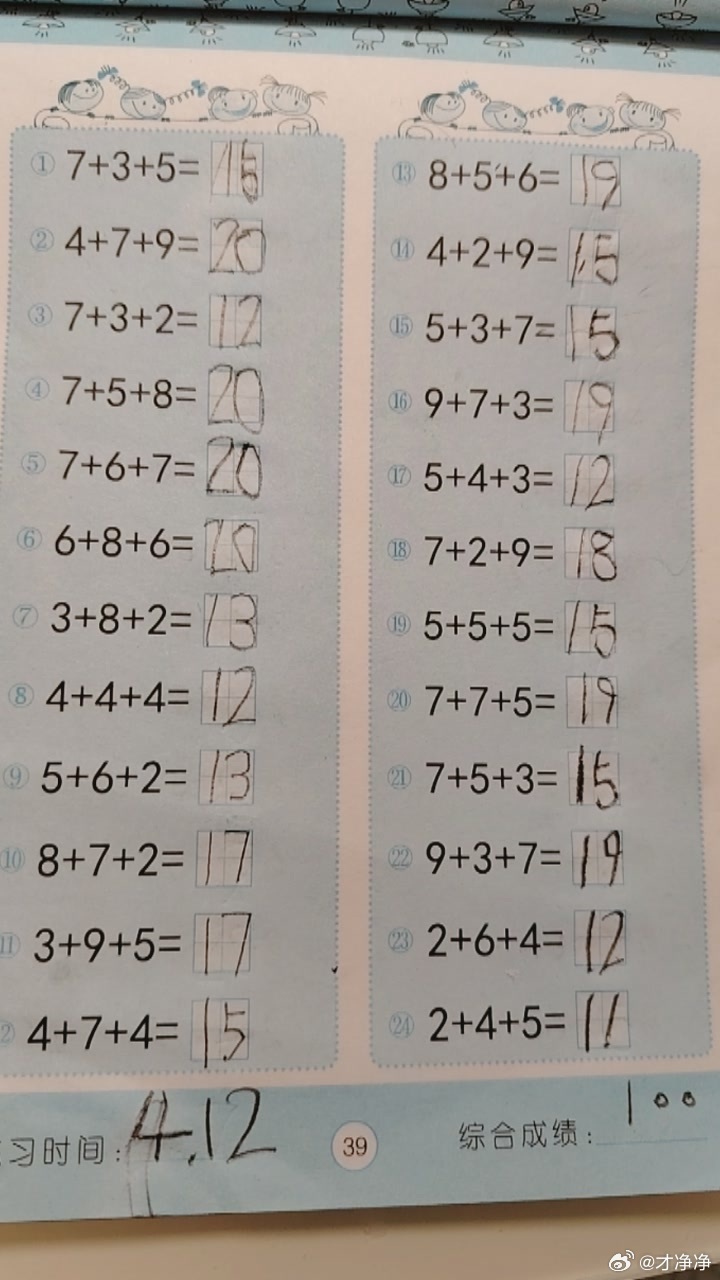 ① 7+3+5=15
② 4+7+9=20
③ 7+3+2=12
④ 7+5+8=20
⑤ 7+6+7=20
⑥ 6+8+6=20
⑦ 3+8+2=13
⑧ 4+4+4=12
⑨ 5+6+2=13
10 8+7+2=17
11 3+9+5=17
2 4+7+4=15
⑬ 8+5+6=19
⑭ 4+2+9=15
⑮ 5+3+7=15
⑯ 9+7+3=19
⑰ 5+4+3=12
⑱ 7+2+9=18
⑲ 5+5+5=15
⑳ 7+7+5=19
㉑ 7+5+3=15
㉒ 9+3+7=19
㉓ 2+6+4=12
㉔ 2+4+5=11
习时间:4.12
39
综合成绩:100
@才净净